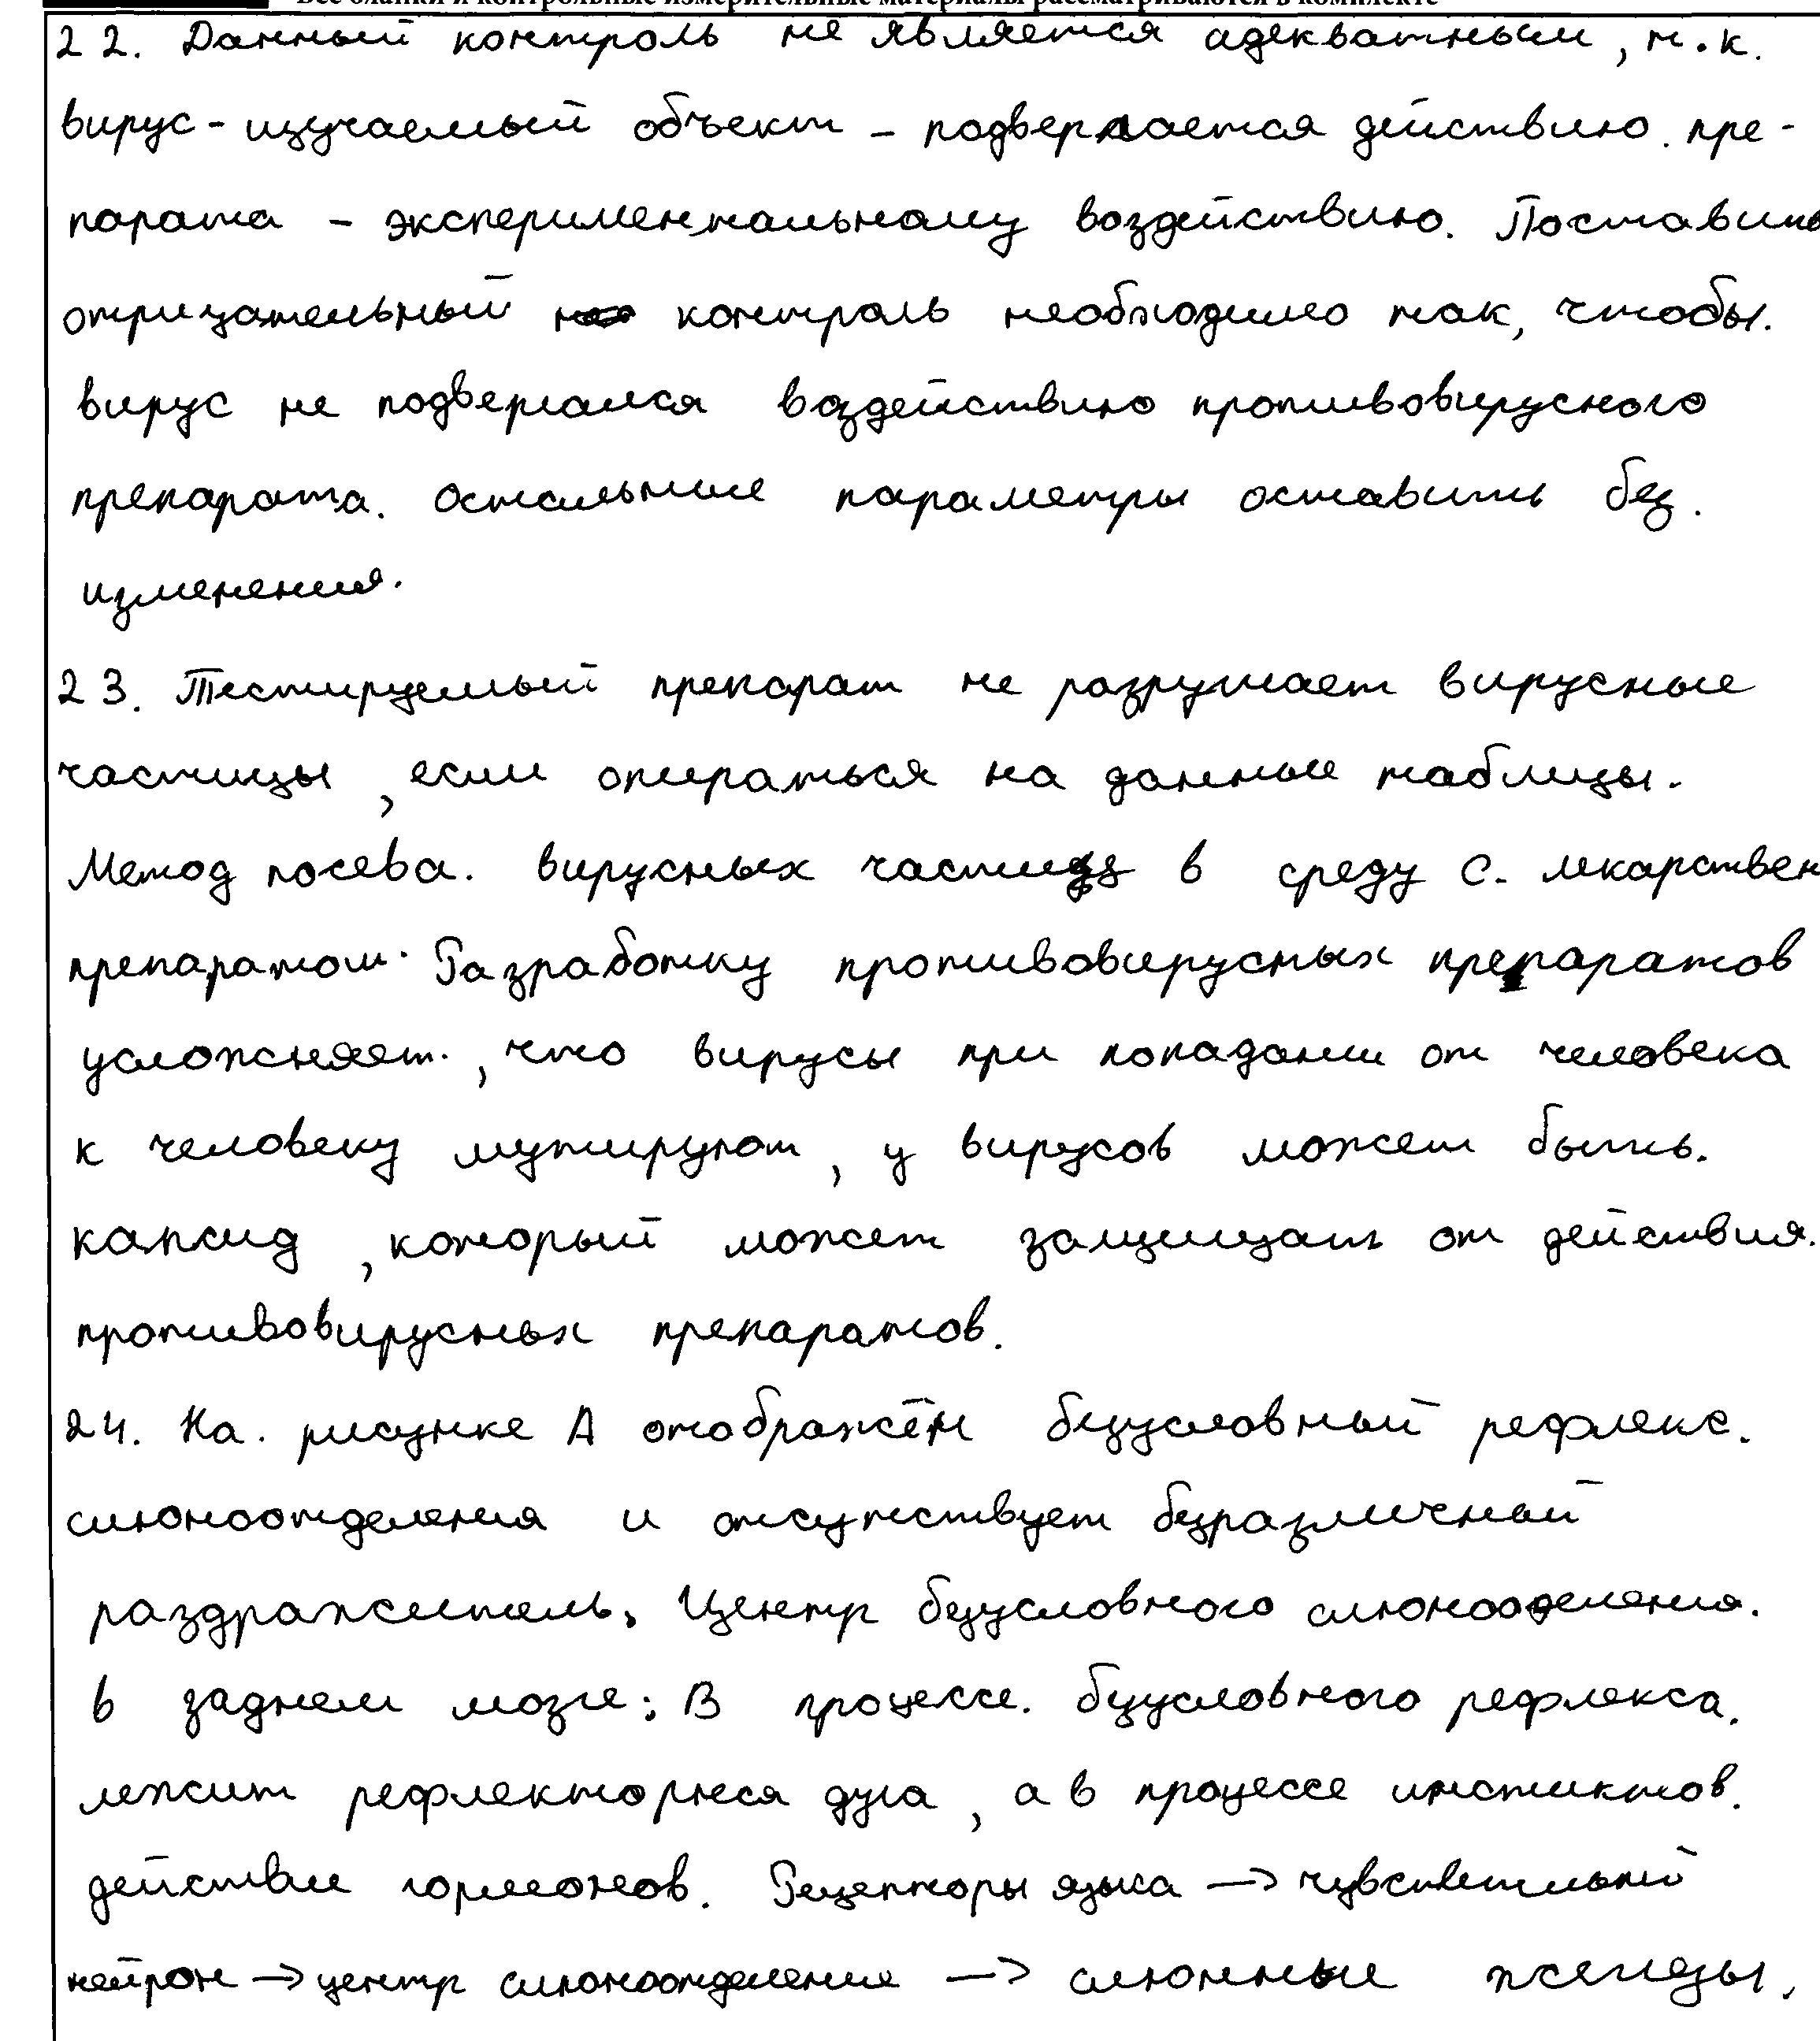 Все бланки и контрольные измерительные материалы рассматриваются в комплекте
22. Данный контроль не является адекватным, т.к.
вирус - изучаемый объект - подвергается действию пре-
парата - экспериментальному воздействию. Поставить
отрицательный контроль необходимо так, чтобы
вирус не подвергался воздействию противовирусного
препарата. Остальные параметры оставить без
изменения.
23. Тестируемый препарат не разрушает вирусные
частицы, если опираться на данные таблицы.
Метод посева вирусных частиц в среду с лекарствен
препаратом. Разработку противовирусных препаратов
усложняет, что вирусы при попадании от человека
к человеку мутируют, у вирусов может быть
капсид, который может защищать от действия
противовирусных препаратов.
24. На рисунке А отображён безусловный рефлекс
слюноотделения и отсутствует безразличный
раздражитель. Центр безусловного слюнооделения
в заднем мозге; В процессе безусловного рефлекса
лежит рефлекторнеся дуга, а в процессе инстиктов
действие гормонов. Рецепторы языка → чувствительный
нейрон → центр слюноотделения → слюнные железы.